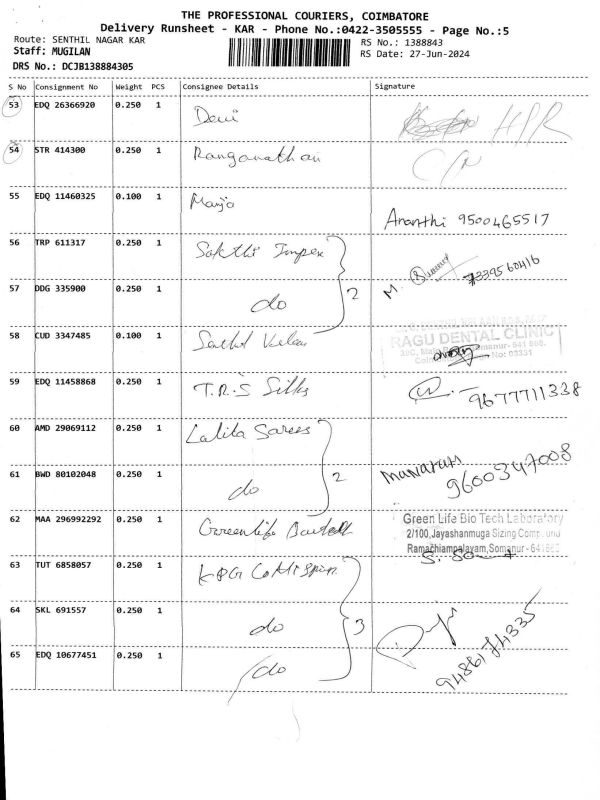 THE PROFESSIONAL COURIERS, COIMBATORE
Delivery Runsheet - KAR - Phone No.:0422-3505555 - Page No.:5
Route: SENTHIL NAGAR KAR
RS No.: 1388843
Staff: MUGILAN
RS Date: 27-Jun-2024
DRS No.: DCJB138884305
S No Consignment No Weight PCS Consignee Details Signature
53 EDQ 26366920 0.250 1 Devi HPR
54 STR 414300 0.250 1 Ranganathan C/N
55 EDQ 11460325 0.100 1 Manju Ananthi 9500465517
56 TRP 611317 0.250 1 Sakthi Impex M. 7339560416
57 DDG 335900 0.250 1 do 2
58 CUD 3347485 0.100 1 Senthil Velan RAGU DENTAL CLINIC
59 EDQ 11458868 0.250 1 T.R.S Silks 9677711338
60 AMD 29069112 0.250 1 Lalita Sarees
61 BWD 80102048 0.250 1 do 2 9600347008
62 MAA 296992292 0.250 1 Greenlife Green Life Bio Tech Laboratory
2/100,Jayashanmuga Sizing Compound
Ramachiampalayam,Somanur
63 TUT 6858057 0.250 1 KPG
64 SKL 691557 0.250 1 do 3
65 EDQ 10677451 0.250 1 do 9486174335